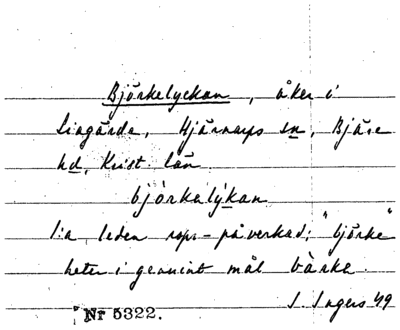 Björkelyckan, åker i
Liagärde, Hjärnarps sn, Bjäre
hd, Krist. län
björkelýkan
1:a leden rspr-påverkad; "björke"
heter i genuint mål bàrke.
S. Ingers 49
Nr 5322.